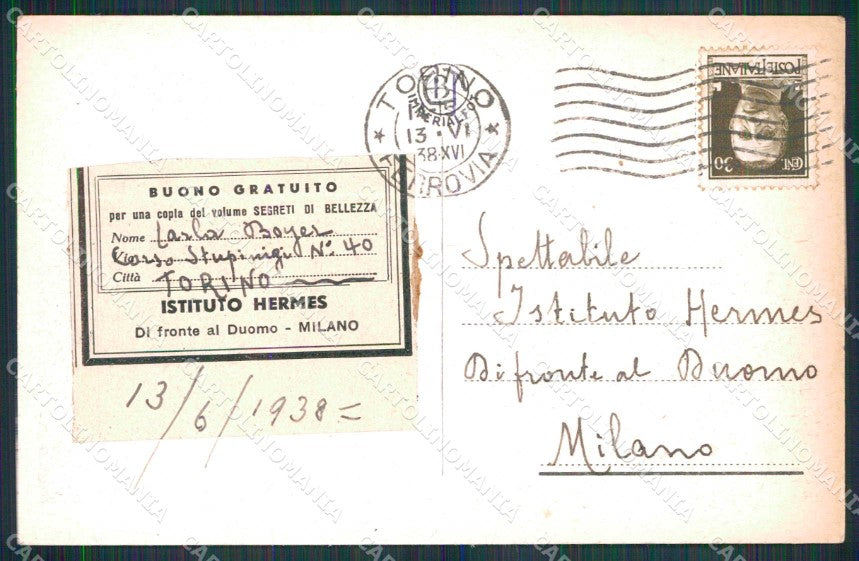 BUONO GRATUITO
per una copia del volume SEGRETI DI BELLEZZA
Nome Carla Boyer
Corso Stupinigi N° 40
Città TORINO
ISTITUTO HERMES
Di fronte al Duomo - MILANO
13/6/1938=
TORINO
13·VI
38·XVI
FERROVIA
POSTE ITALIANE
CENT. 30
Spettabile
Istituto Hermes
Di fronte al Duomo
Milano
CARTOLINOMANIA